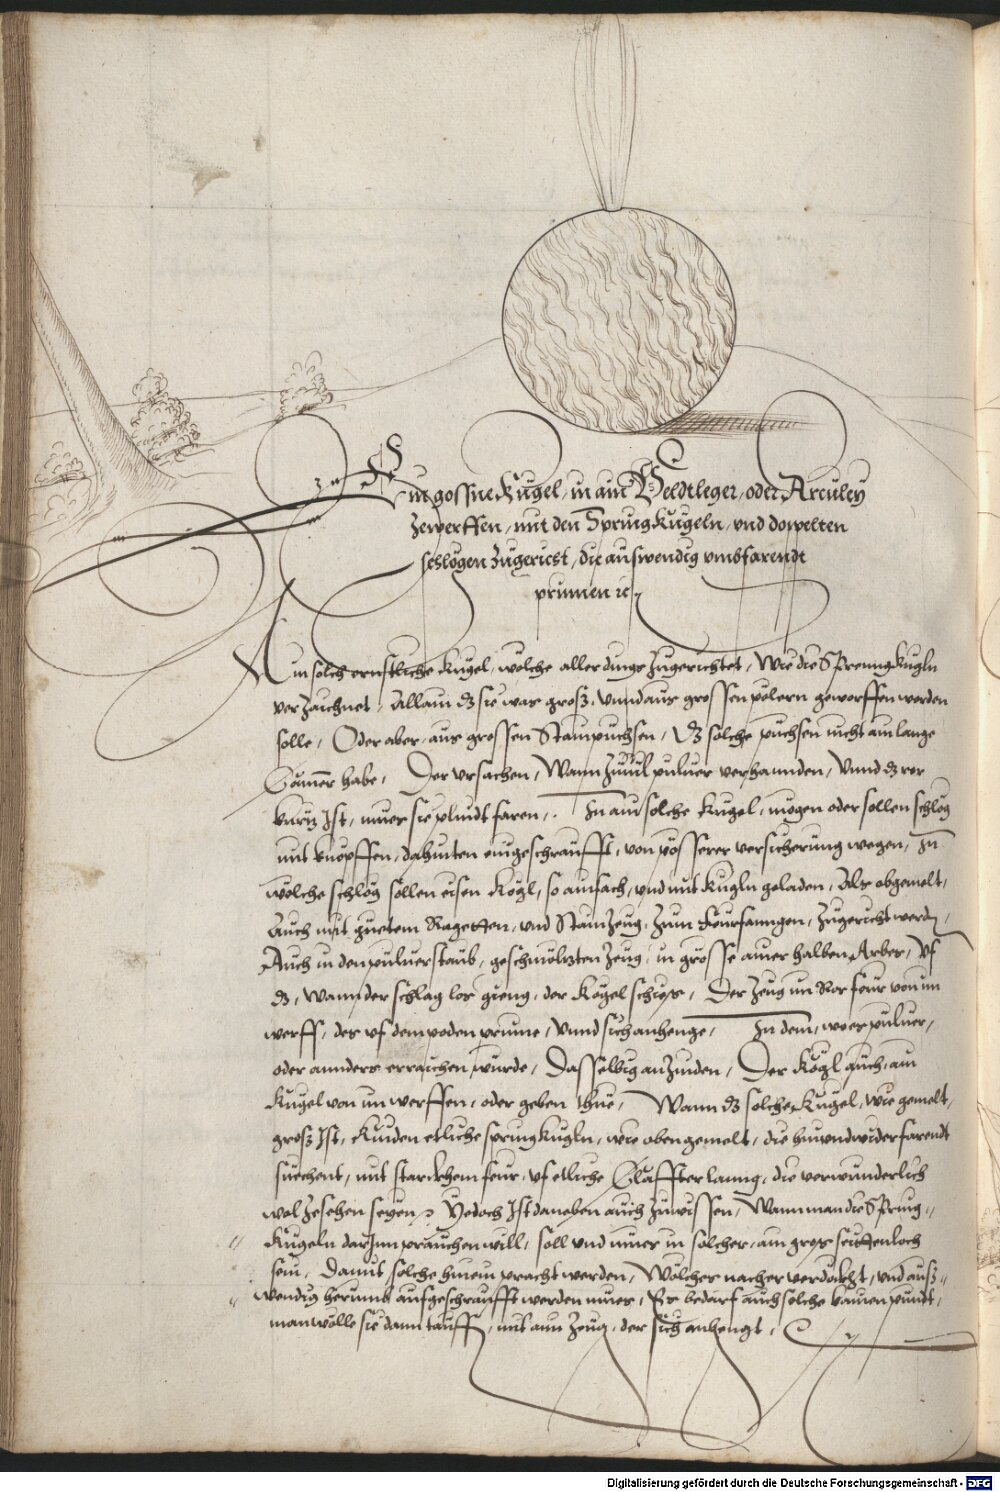 Ein gossne Kugel, in ain Veldtleger, oder Arculey
Zewerffen, mit den Sprungkugeln, und doppelten
schlögen Zugericht, die auswendig umbfarendt
prinnen ꝛc.
Ain solch ernstliche Kugel, wölche aller dings Zugerichtet, Wie die Sprenngkugln
verzaichnet, Allain dz sie was groß, unnd aus grossen polern geworffen werden
solle, Oder aber, aus grossen Stainpuchsen, Dz solche puchsen nicht ain lange
Camer habe, Der ursachen, Wann Zuuil puluer verhannden, Unnd dz ror
kurtz Ist, mues sie plindt faren. In ain solche Kugel, mögen oder sollen schlög
mit knöpffen, dahinten eingeschraufft, von pösserer versicherung wegen, In
wölche schlög sollen eisen Kögl, so ainfach, und mit kugln geladen, Als obgemelt,
Auch mit guetem Ragetten, und Stainzeug, Zum feurfanngen, Zugericht werden,
Auch in dem puluerstaub, geschmöltzten Zeug, in grösse ainer halben Arbes, Uf
dz, wann der schlag los gieng, der Kögel schies, Der Zeug im Ror feur von im
werff, der uf dem poden prinne, Unnd sich anhenge, In dem, wo er puluer,
oder annders erraichen wurde, Dasselbig anzinden, Der Kögl auch, ain
Kugel von im werffen, oder geben thue, Wann dz solche Kugel, wie gemelt,
groß Ist, Künden etliche springkugln, wie oben gemelt, die hin und wider farendt
suechent, mit starckhem feur, uf etliche Claffter lanng, die verwunderlich
wol Zesehen seyen, Yedoch Ist daneben auch Zuwissen, Wann man die Spring
Kugeln darInn prauchen will, soll und mues in solcher, ain gros seittenloch
sein, Damit solche hinein pracht werden, Wölches nacher verdöckht, und aus
wendig herumb aufgeschraufft werden mues, Es bedarf auch solche kainen pundt,
man wölle sie dann tauff, mit ain Zeug, der sich anhengt,
Digitalisierung gefördert durch die Deutsche Forschungsgemeinschaft - DFG